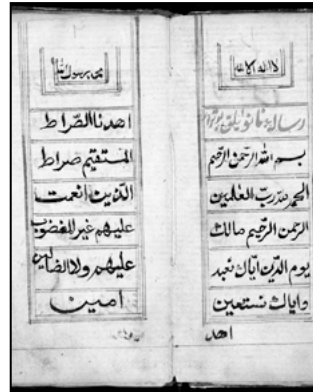 لا اله الا الله
رسالة
بسم الله الرحمن الرحيم
الحمد لله رب العلمين
الرحمن الرحيم مالك
يوم الدين اياك نعبد
واياك نستعين
اهد
محمد رسول الله
اهدنا الصراط
المستقيم صراط
الذين انعمت
عليهم غير المغضوب
عليهم ولا الضالين
امين